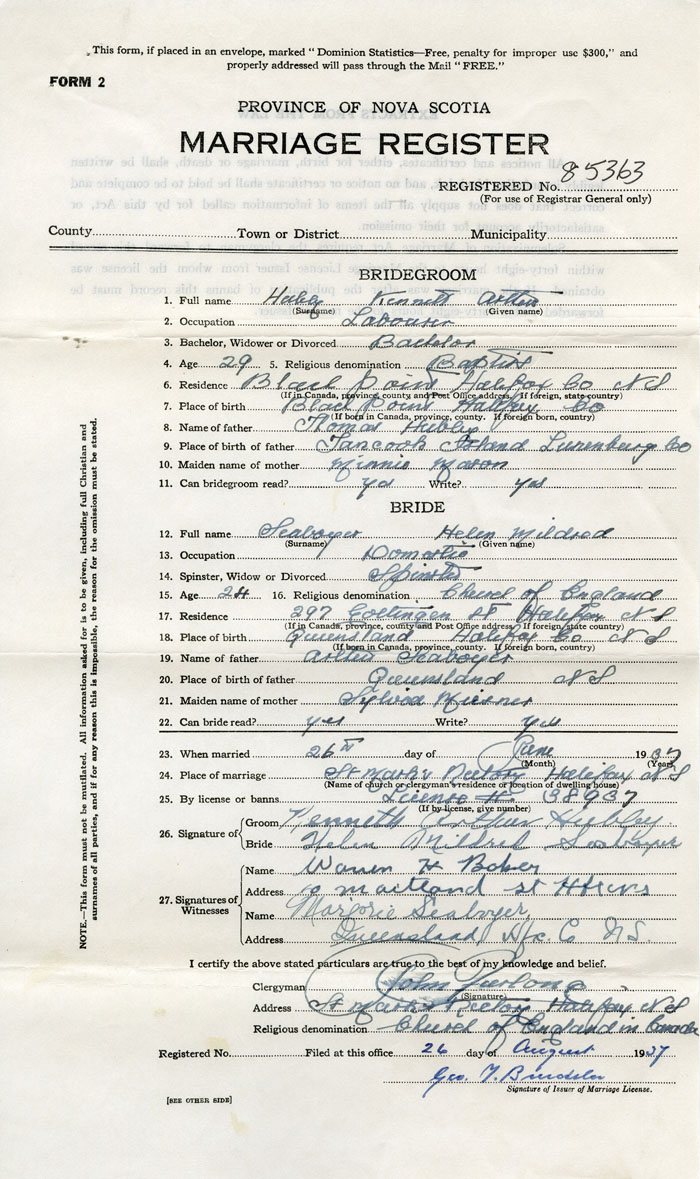 This form, if placed in an envelope, marked "Dominion Statistics—Free, penalty for improper use $300," and
properly addressed will pass through the Mail "FREE."
FORM 2
PROVINCE OF NOVA SCOTIA
MARRIAGE REGISTER
REGISTERED No. 85363
(For use of Registrar General only)
County Town or District Municipality
BRIDEGROOM
1. Full name Hubley Kenneth Arthur
(Surname) (Given name)
2. Occupation Labourer
3. Bachelor, Widower or Divorced Bachelor
4. Age 29 5. Religious denomination Baptist
6. Residence Black Point Halifax Co N S
(If in Canada, province, county and Post Office address. If foreign, state country)
7. Place of birth Black Point Halifax Co
(If born in Canada, province, county. If foreign born, country)
8. Name of father Thomas Hubley
9. Place of birth of father Tancook Island Lunenburg Co
10. Maiden name of mother Minnie Mason
11. Can bridegroom read? yes Write? yes
BRIDE
12. Full name Seaboyer Helen Mildred
(Surname) (Given name)
13. Occupation Domestic
14. Spinster, Widow or Divorced Spinster
15. Age 24 16. Religious denomination Church of England
17. Residence 297 Gottingen St Halifax N S
(If in Canada, province, county and Post Office address. If foreign, state country)
18. Place of birth Queensland Halifax Co N S
(If born in Canada, province, county. If foreign born, country)
19. Name of father Arthur Seaboyer
20. Place of birth of father Queensland N S
21. Maiden name of mother Sylvia Misner
22. Can bride read? yes Write? yes
23. When married 26th day of June 1937
(Month) (Year)
24. Place of marriage St Mark's Rectory Halifax N S
(Name of church or clergyman's residence or location of dwelling house)
25. By license or banns License No. 38937
(If by license, give number)
26. Signature of Groom Kenneth Arthur Hubley
Bride Helen Mildred Seaboyer
27. Signatures of Witnesses
Name Warren H Baker
Address maitland st
Name Marjorie Seaboyer
Address Queensland, Hfx. Co N.S.
I certify the above stated particulars are true to the best of my knowledge and belief.
Clergyman John Furlong
(Signature)
Address St Mark's Rectory Halifax N S
Religious denomination Church of England in Canada
Registered No. Filed at this office 26 day of August 1937
Geo.
Signature of Issuer of Marriage License.
[SEE OTHER SIDE]
NOTE.—This form must not be mutilated. All information asked for is to be given, including full Christian and
surnames of all parties, and if for any reason this is impossible, the reason for the omission must be stated.